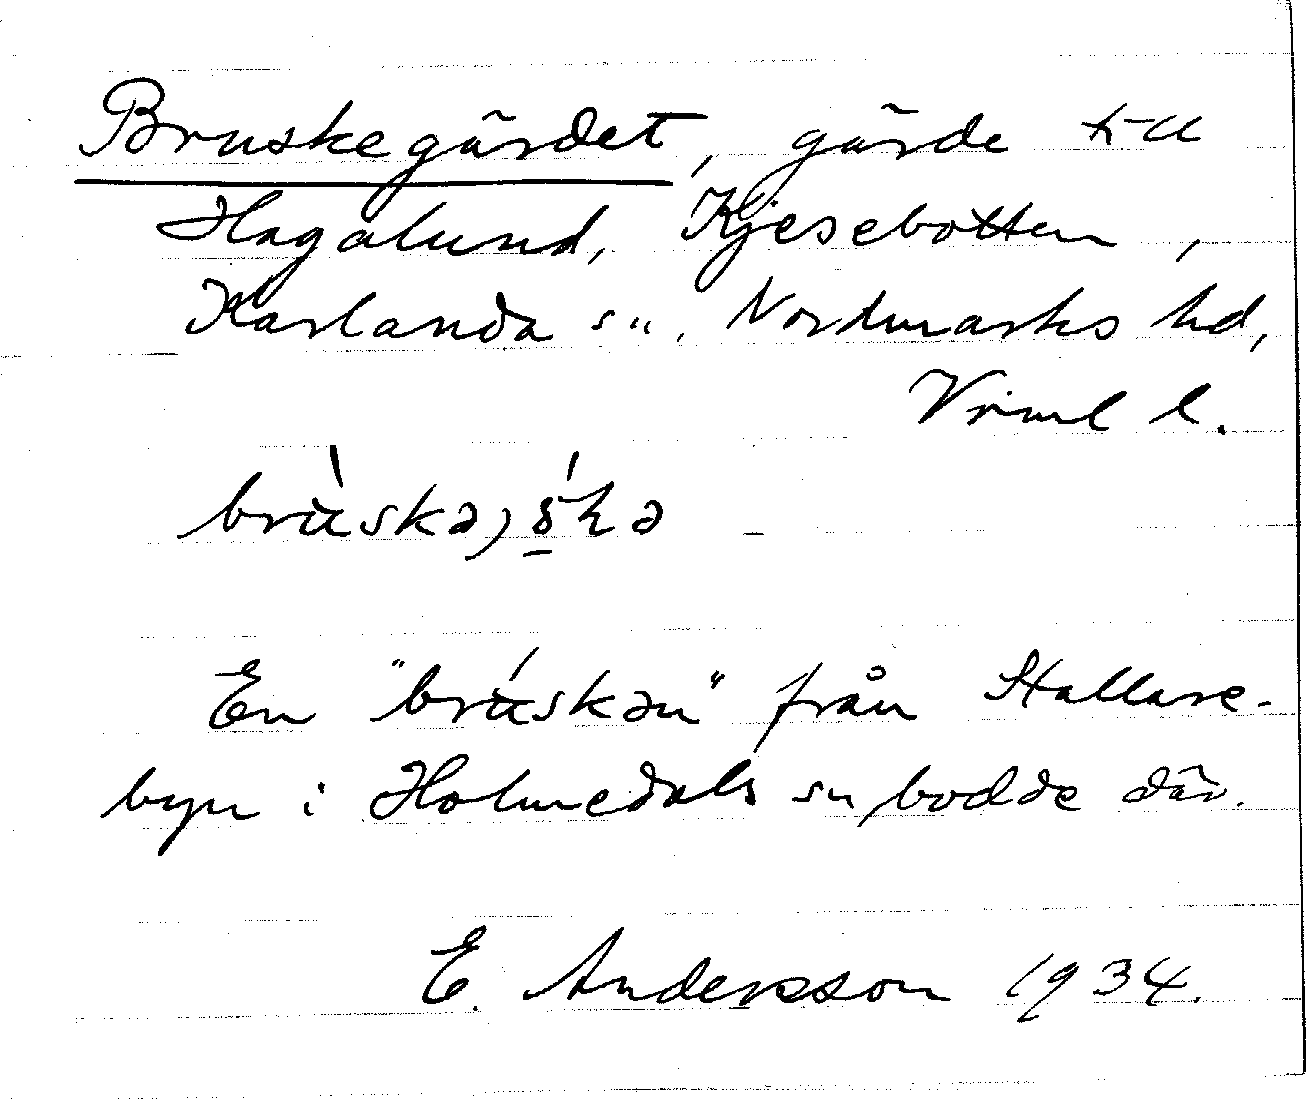 Bruskegärdet, gärde till
Hagalund, Kjesebotten,
Karlanda sn, Nordmarks hd,
Vrml l.
En "brúskən" från Stallare-
byn i Holmedals sn bodde där.
E. Andersson 1934.